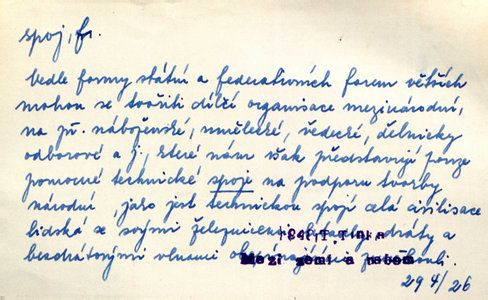 spoj, fr.
Vedle formy státní a federativních forem větších
mohou se tvořiti dílčí organisace mezinárodní,
na př. náboženské, umělecké, vědecké, dělnicky
odborové a j., které nám však představují pouze
pomocné technické spoje na podporu tvorby
národní, jako jest technickou spojí celá civilisace
lidská se svými železnicemi, dráty a
bezdrátovými vlnami
Mezi zemí a nebem
29 4/26